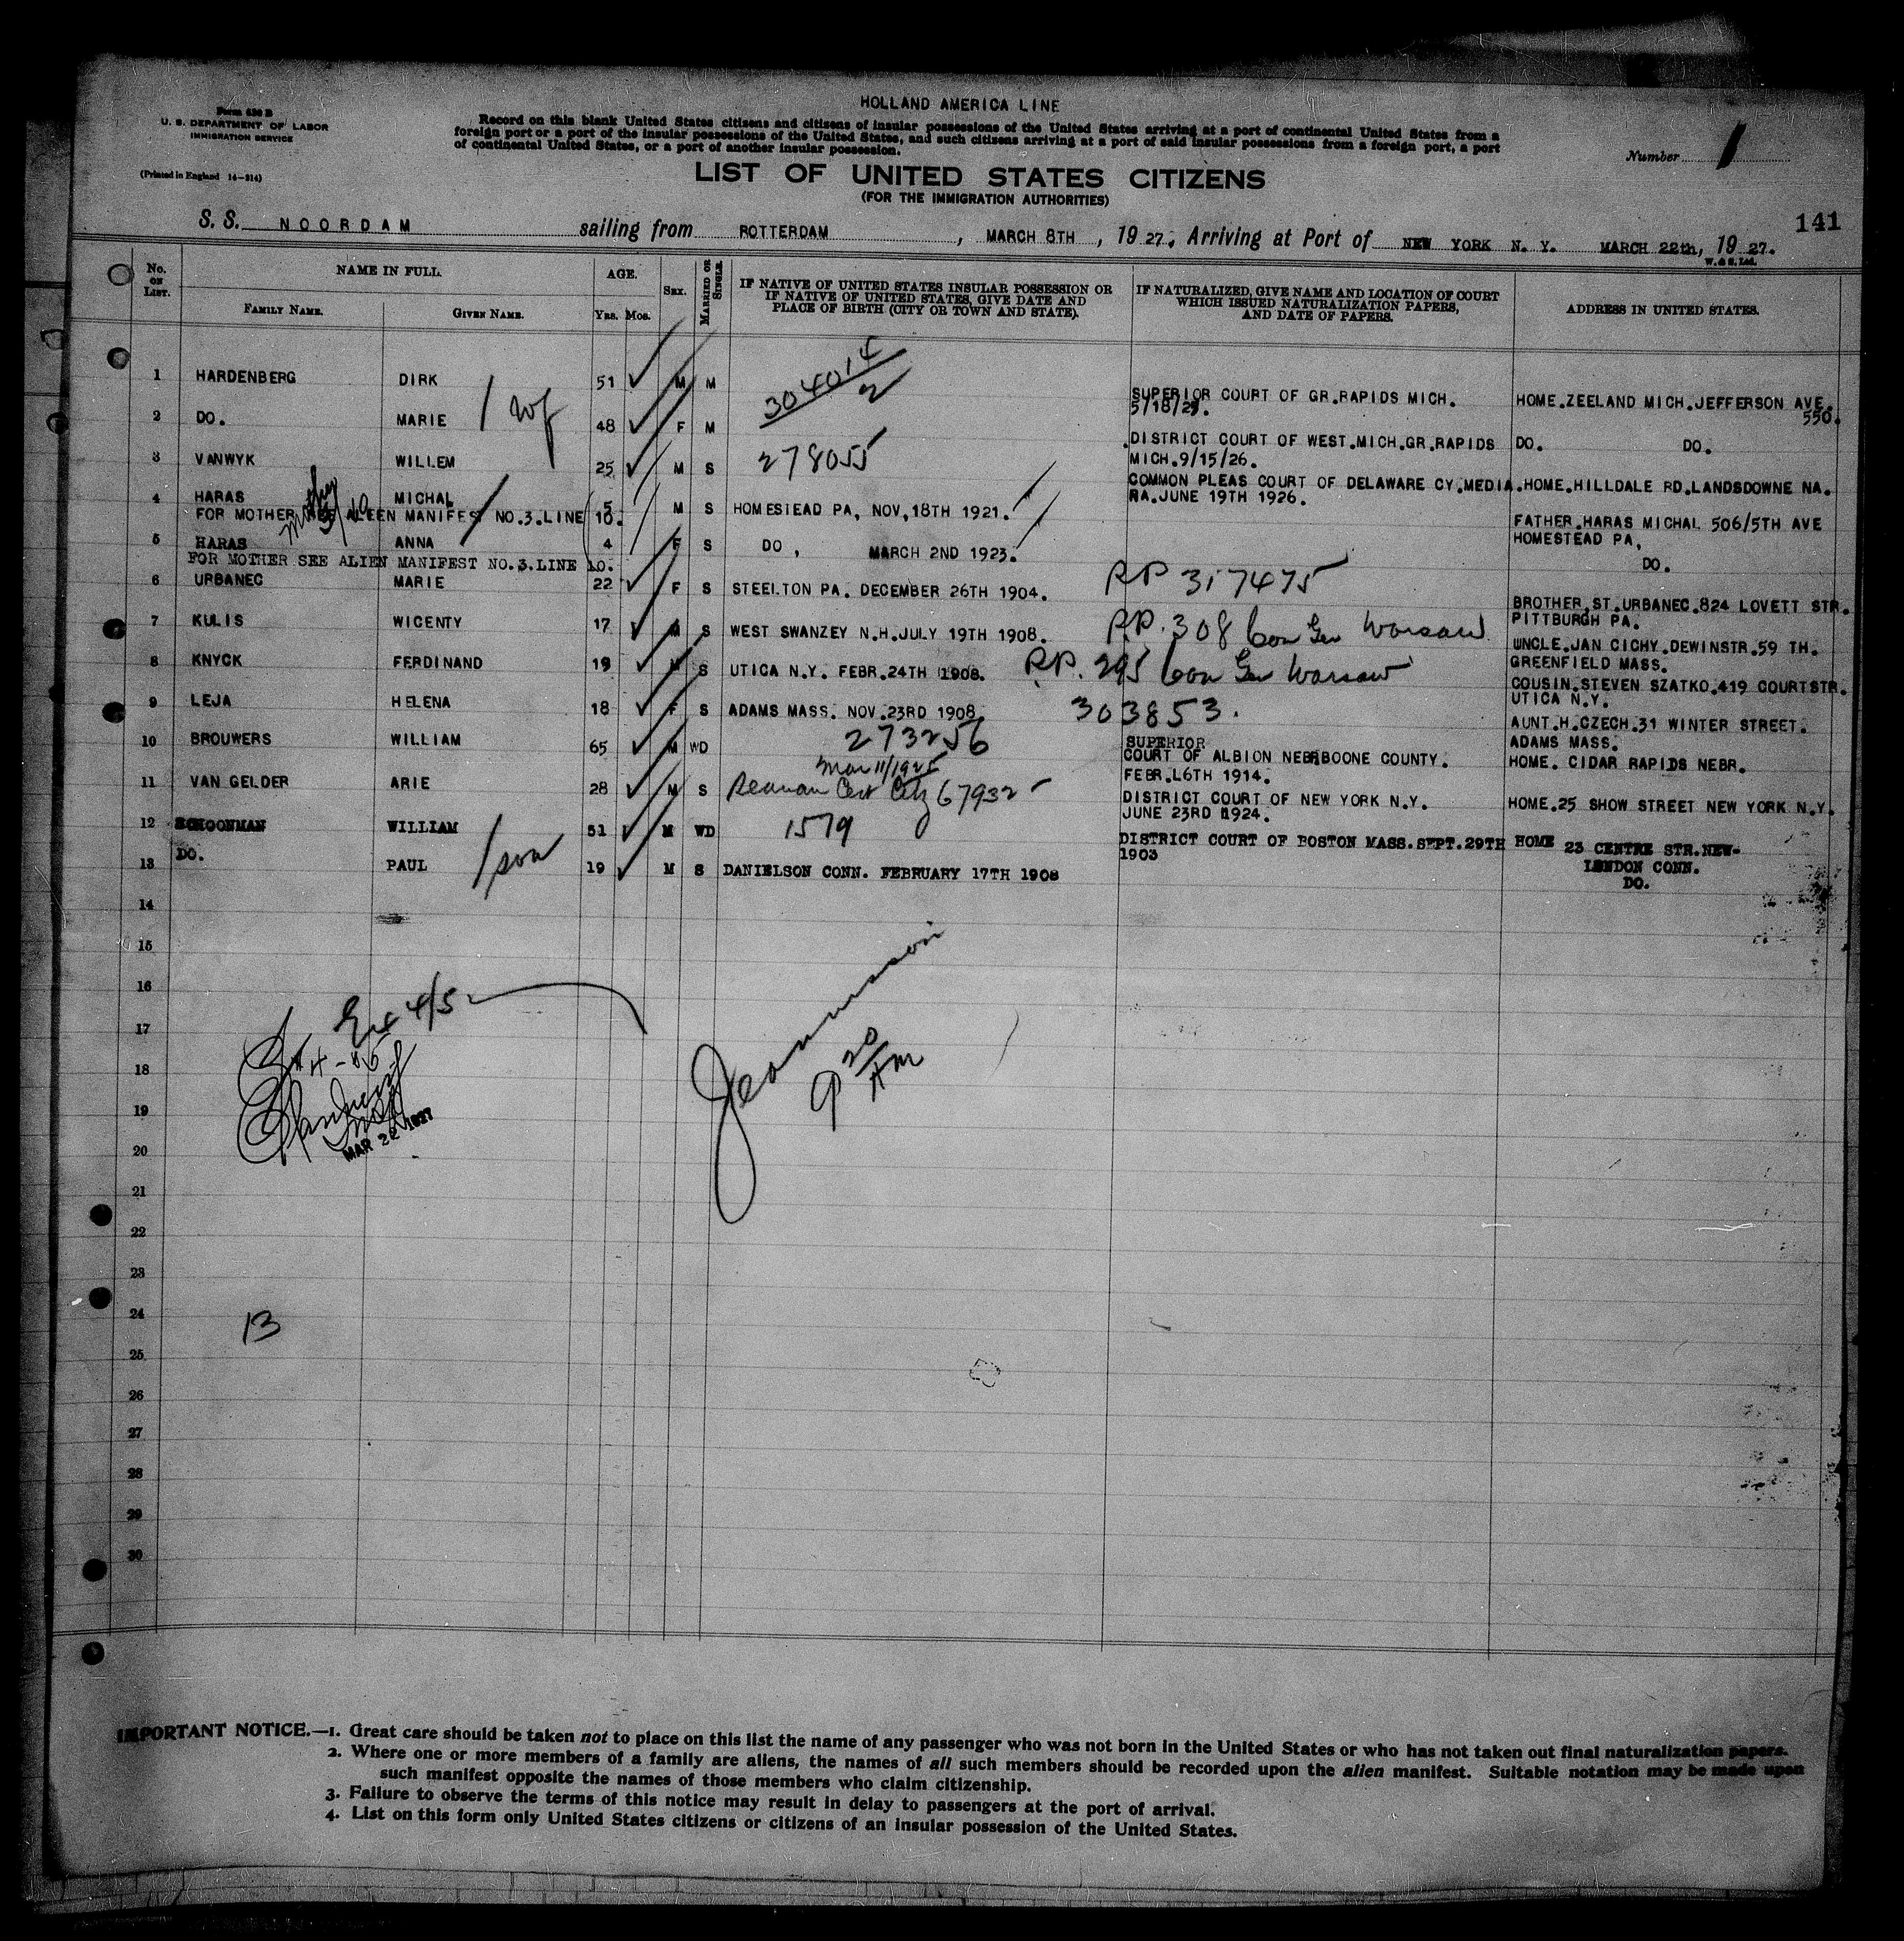 HOLLAND AMERICA LINE
Form 630 B
U. S. DEPARTMENT OF LABOR
IMMIGRATION SERVICE
(Printed in England 14-214)
Record on this blank United States citizens and citizens of insular possessions of the United States arriving at a port of continental United States from a
foreign port or a port of the insular possessions of the United States, and such citizens arriving at a port of said insular possessions from a foreign port, a port
of continental United States, or a port of another insular possession.
Number 1
LIST OF UNITED STATES CITIZENS
(FOR THE IMMIGRATION AUTHORITIES)
141
S. S. NOORDAM sailing from ROTTERDAM, MARCH 8TH, 1927, Arriving at Port of NEW YORK N. Y. MARCH 22th, 1927.
W. & S. Ltd.
No. ON LIST. NAME IN FULL. AGE. SEX. MARRIED OR SINGLE. IF NATIVE OF UNITED STATES INSULAR POSSESSION OR IF NATIVE OF UNITED STATES, GIVE DATE AND PLACE OF BIRTH (CITY OR TOWN AND STATE). IF NATURALIZED, GIVE NAME AND LOCATION OF COURT WHICH ISSUED NATURALIZATION PAPERS, AND DATE OF PAPERS. ADDRESS IN UNITED STATES.
FAMILY NAME. GIVEN NAME. YRS. MOS.
1 HARDENBERG DIRK 51 M M 304014 SUPERIOR COURT OF GR.RAPIDS MICH. HOME.ZEELAND MICH.JEFFERSON AVE.
2 5/18/21. 550.
2 DO. MARIE / wf 48 F M DISTRICT COURT OF WEST.MICH.GR.RAPIDS DO. DO.
MICH.9/15/26.
3 VANWYK WILLEM 25 M S 278055 COMMON PLEAS COURT OF DELAWARE CY.MEDIA.HOME.HILLDALE RD.LANSDOWNE NA.
RA.JUNE 19TH 1926.
4 HARAS MICHAL 5 M S HOMESTEAD PA, NOV,18TH 1921. FATHER.HARAS MICHAL 506/5TH AVE
FOR MOTHER SEE ALEEN MANIFEST NO.3.LINE 10. HOMESTEAD PA,
mother 3/10
5 HARAS ANNA 4 F S DO, MARCH 2ND 1923. DO.
FOR MOTHER SEE ALIEN MANIFEST NO.3.LINE 10.
6 URBANEC MARIE 22 F S STEELTON PA. DECEMBER 26TH 1904. PP 317475 BROTHER.ST.URBANEC.824 LOVETT STR.
PITTBURGH PA.
7 KULIS WICENTY 17 M S WEST SWANZEY N.H.JULY 19TH 1908. P.P. 308 Con Gen Warsaw UNCLE.JAN CICHY.DEWINSTR.59 TH.
GREENFIELD MASS.
8 KNYCK FERDINAND 19 M S UTICA N.Y. FEBR.24TH 1908. P.P. 295 Con Gen Warsaw COUSIN.STEVEN SZATKO.419 COURTSTR.
UTICA N.Y.
9 LEJA HELENA 18 F S ADAMS MASS. NOV.23RD 1908 303853. AUNT.H.CZECH.31 WINTER STREET.
ADAMS MASS.
10 BROUWERS WILLIAM 65 M WD 273256 SUPERIOR
COURT OF ALBION NEBRBOONE COUNTY. HOME. CIDAR RAPIDS NEBR.
FEBR.L6TH 1914.
Mar 11/1925
11 VAN GELDER ARIE 28 M S Seaman Cert Citz 67932 DISTRICT COURT OF NEW YORK N.Y. HOME.25 SHOW STREET NEW YORK N.Y.
JUNE 23RD 1924.
12 SCHOONMAN WILLIAM 51 M WD 1579 DISTRICT COURT OF BOSTON MASS.SEPT.29TH HOME 23 CENTRE STR.NEW-
1903 LENDON CONN.
13 DO. PAUL / son 19 M S DANIELSON CONN. FEBRUARY 17TH 1908 DO.
14
15
16
Ex 4/5
17
18
19
MAR 22 1927
20
9 20 AM
21
22
23
24
13
25
26
27
28
29
30
IMPORTANT NOTICE.—1. Great care should be taken not to place on this list the name of any passenger who was not born in the United States or who has not taken out final naturalization papers.
2. Where one or more members of a family are aliens, the names of all such members should be recorded upon the alien manifest. Suitable notation may be made upon
such manifest opposite the names of those members who claim citizenship.
3. Failure to observe the terms of this notice may result in delay to passengers at the port of arrival.
4. List on this form only United States citizens or citizens of an insular possession of the United States.